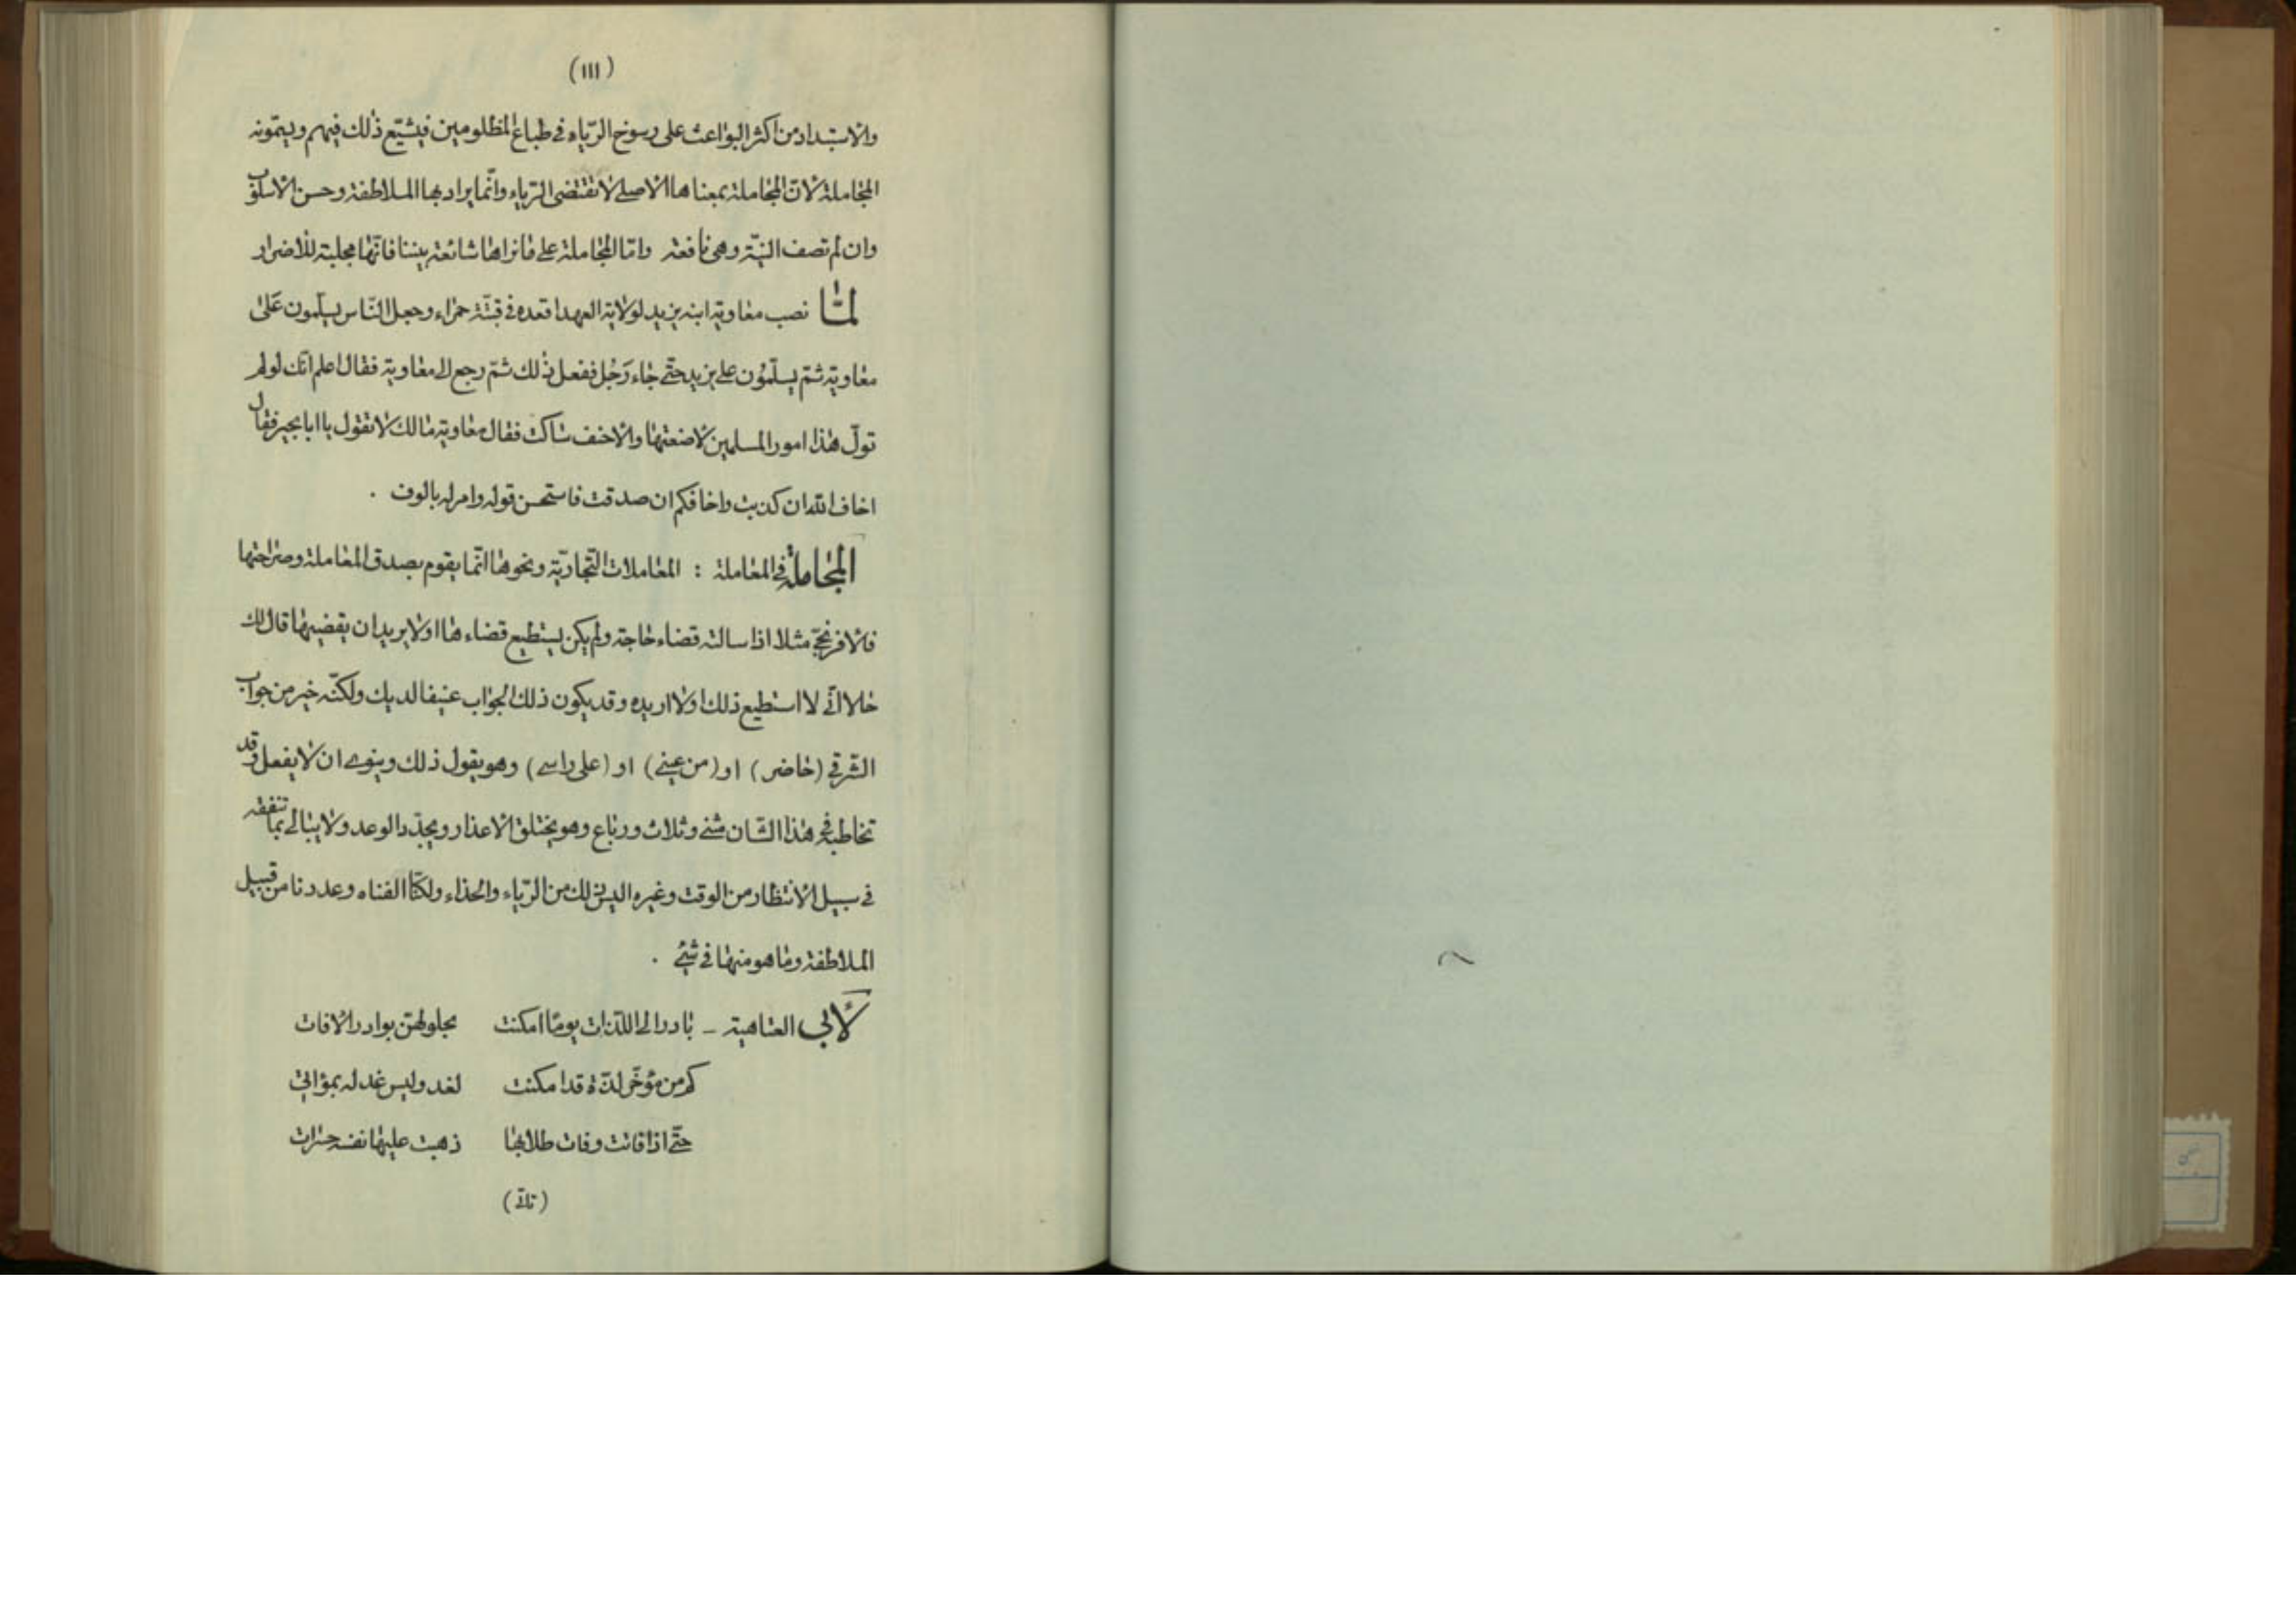 (١١١)
والاستبداد من اكثر البواعث على رسوخ الرّياء في طباع المظلومين فيشيّع ذلك فيهم ويسمّونه
المجاملة لانّ المجاملة بمعناها الاصلي لا تقتضى الرّياء وانّما يراد بها الملاطفة وحسن الاسلوب
وان لم تصف النيّة وهى نافعة وامّا المجاملة على ما نراها شائعة بيننا فانّها مجلبة للاضرار
لمّا نصب معاوية ابنه يزيد لولاية العهد اقعده في قبّة حمراء وجعل النّاس يسلّمون على
معاوية ثمّ يسلّمون على يزيد حتّى جاء رَجُل ففعل ذلك ثمّ رجع الى معاوية فقال اعلم انّك لو لم
تولّ هذا امور المسلمين لاضعتها والاحنف ساكت فقال معاوية مالك لا تقول يا ابا بحير فقال
اخاف الله ان كذبت واخافكم ان صدقت فاستحسن قوله وامر له بالوف .
المجاملة في المعاملة : المعاملات التّجاريّة ونحوها انّما يقوم بصدق المعاملة وصراحتها
فالافرنجيّ مثلا اذا سالته قضاء حاجة ولم يكن يستطيع قضاءها او لا يريد ان يقضيها قال لك
حالا انّي لا استطيع ذلك او لا اريده وقد يكون ذلك الجواب عنيفا لديك ولكنّه خير من جواب
الشّرقي (حاضر) او (من عيني) او (على راسي) وهو يقول ذلك وينوي ان لا يفعل وقد
تخاطبه في هذا الشّان مثنى وثلاث ورباع وهو يختلق الاعذار ويجدّد الوعد ولا يبالي بما تنفقه
في سبيل الانتظار من الوقت وغيره اليس ذلك من الرّياء والحذاء ولكنّا الفناه وعددنا من قبيل
الملاطفة وما هو منها في شيء .
لأبي العتاهية – بادر الى اللّذات يومًا امكنت بحلولهنّ بوادر الافات
كم من مؤخّر لذّة قد امكنت لغد وليس غد له بمؤاتي
حتّى اذا فاتت وفات طلابها ذهبت عليها نفسه حسرات